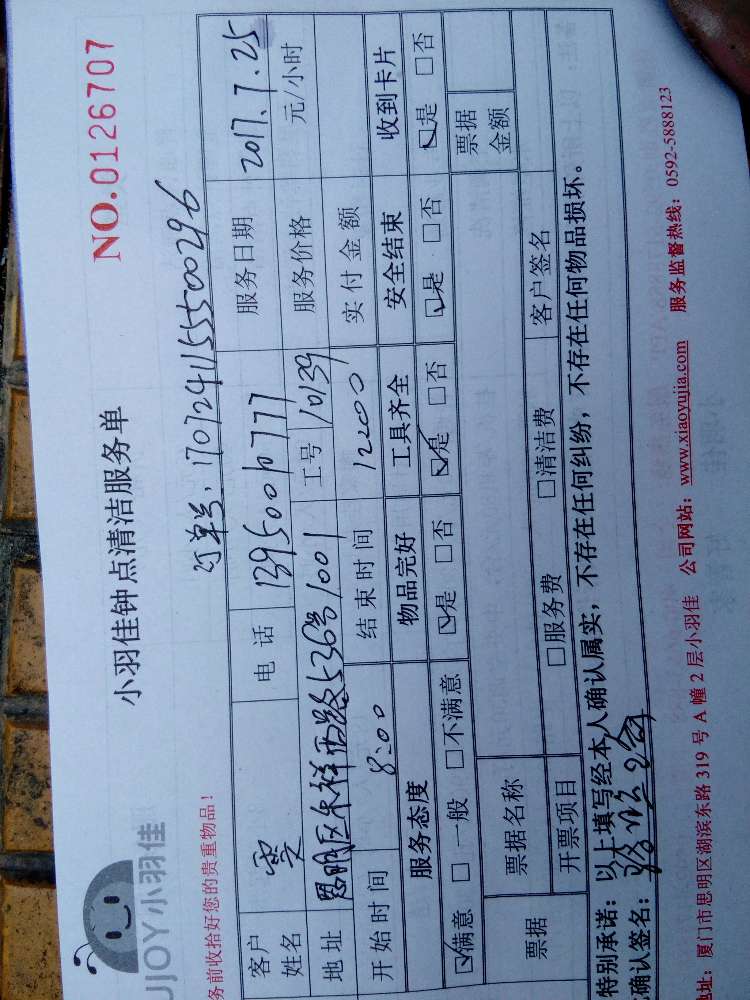 UJOY小羽佳
小羽佳钟点清洁服务单
NO.0126707
务前收拾好您的贵重物品！
订单号：170724155500296
客户姓名 雯 电话 服务日期 2017.7.25
地址 思明区禾祥西路536号1001 工号 10139 服务价格 元/小时
开始时间 8:00 结束时间 12:00 实付金额
服务态度 物品完好 工具齐全 安全结束 收到卡片
☑满意 □一般 □不满意 ☑是 □否 ☑是 □否 ☑是 □否 ☑是 □否
票据 票据名称 票据金额
开票项目 □服务费 □清洁费 客户签名
特别承诺：以上填写经本人确认属实，不存在任何纠纷，不存在任何物品损坏。
确认签名：
址：厦门市思明区湖滨东路 319 号 A 幢 2 层小羽佳 公司网站：www.xiaoyujia.com 服务监督热线：0592-5888123